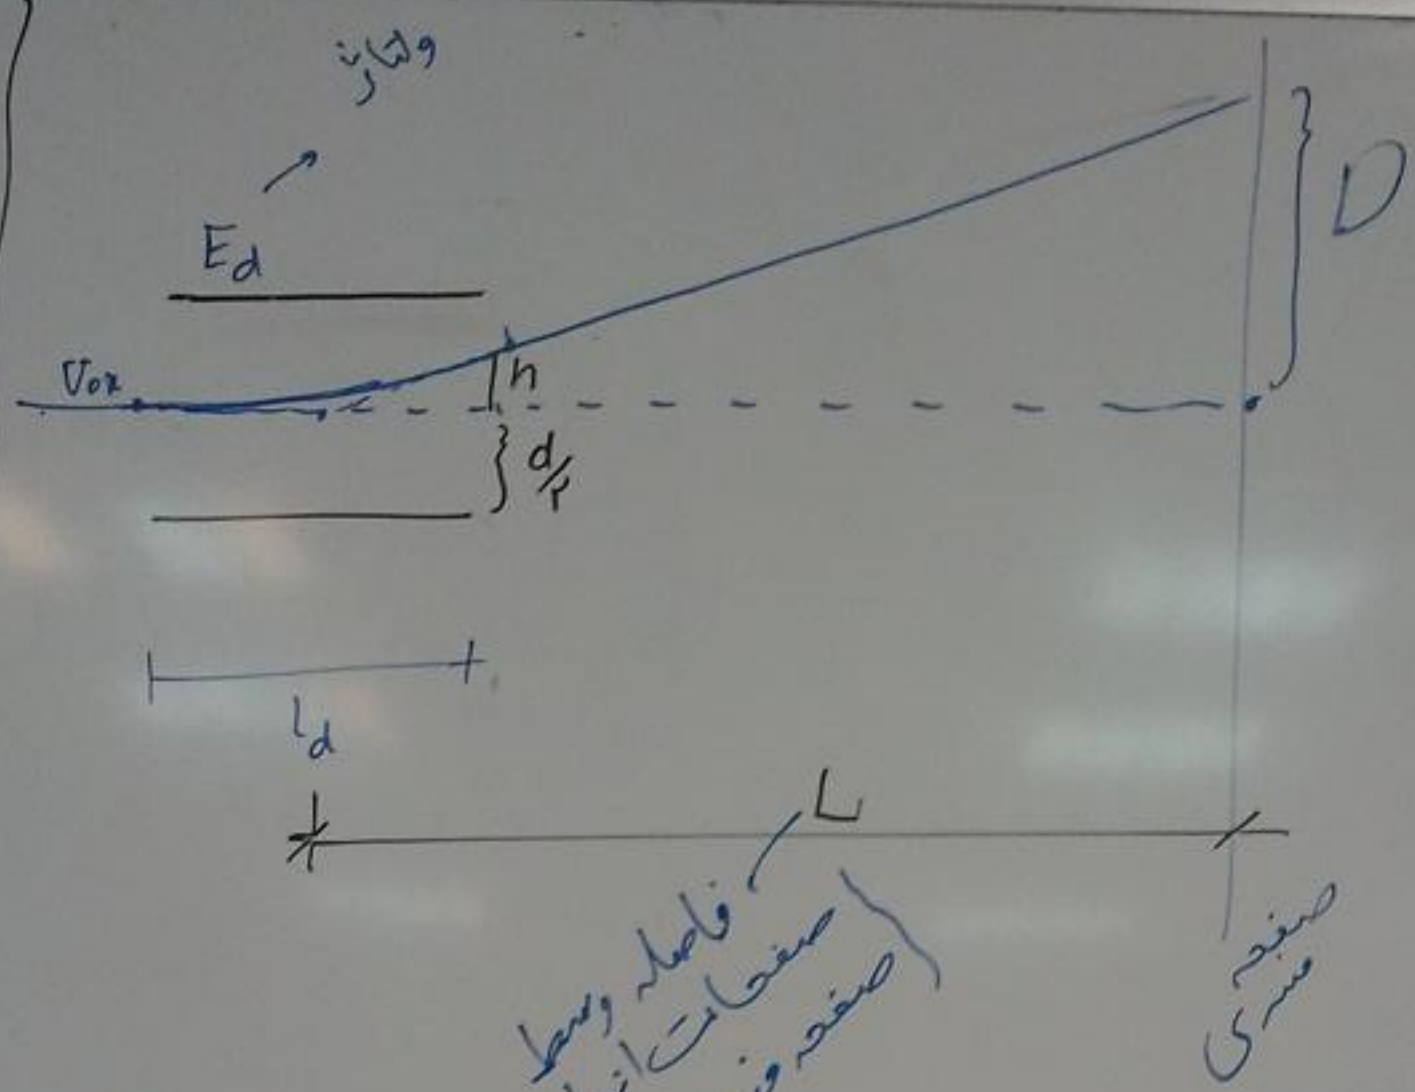 ولتاژ
E_d
D
V_ox
h
d/۲
l_d
L
فاصله وسط
صفحات
صفحه
صفحه